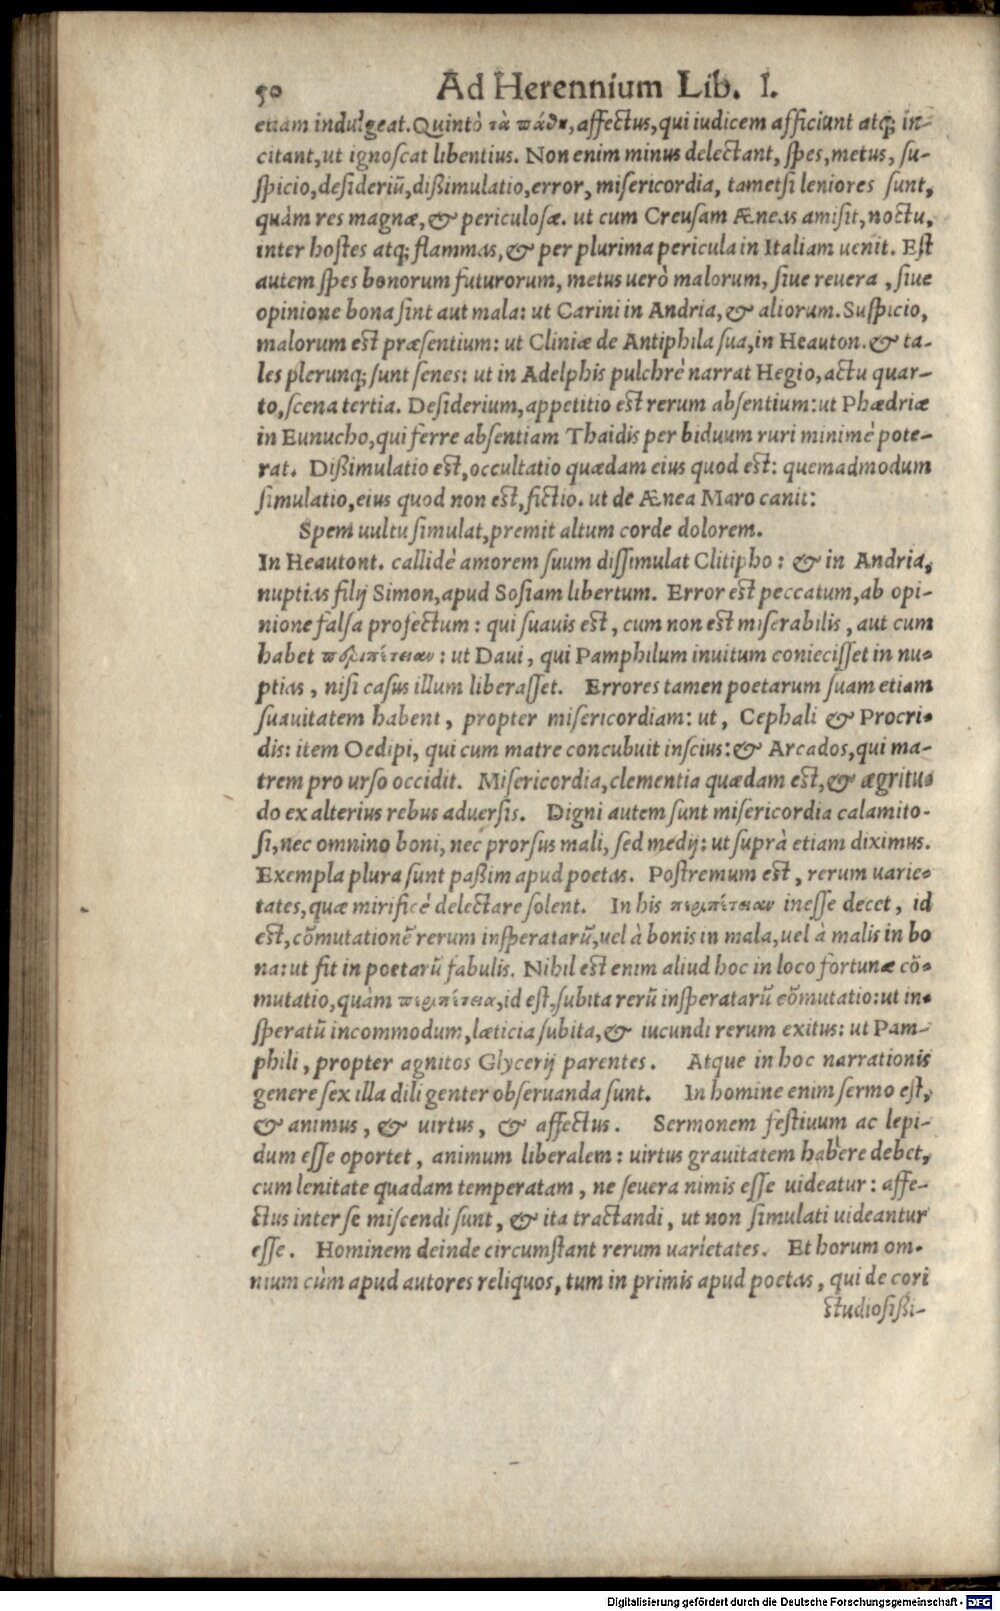 50 Ad Herennium Lib. I.
etiam indulgeat. Quintò τὰ πάθη, affectus, qui iudicem afficiunt atq; in-
citant, ut ignoscat libentius. Non enim minus delectant, spes, metus, su-
spicio, desideriũ, dißimulatio, error, misericordia, tametsi leniores sunt,
quàm res magnæ, & periculosæ. ut cum Creusam Æneas amisit, noctu,
inter hostes atq; flammas, & per plurima pericula in Italiam uenit. Est
autem spes bonorum futurorum, metus uerò malorum, siue reuera, siue
opinione bona sint aut mala: ut Carini in Andria, & aliorum. Suspicio,
malorum est præsentium: ut Cliniæ de Antiphila sua, in Heauton. & ta-
les plerunq; sunt senes: ut in Adelphis pulchrè narrat Hegio, actu quar-
to, scena tertia. Desiderium, appetitio est rerum absentium: ut Phædriæ
in Eunucho, qui ferre absentiam Thaidis per biduum ruri minimè pote-
rat. Dißimulatio est, occultatio quædam eius quod est: quemadmodum
simulatio, eius quod non est, fictio. ut de Ænea Maro canit:
Spem uultu simulat, premit altum corde dolorem.
In Heautont. callidè amorem suum dissimulat Clitipho: & in Andria,
nuptias filij Simon, apud Sosiam libertum. Error est peccatum, ab opi-
nione falsa profectum: qui suauis est, cum non est miserabilis, aut cum
habet περιπέτειαν: ut Daui, qui Pamphilum inuitum coniecisset in nu-
ptias, nisi casus illum liberasset. Errores tamen poetarum suam etiam
suauitatem habent, propter misericordiam: ut, Cephali & Procri-
dis: item Oedipi, qui cum matre concubuit inscius: & Arcados, qui ma-
trem pro urso occidit. Misericordia, clementia quædam est, & ægritu-
do ex alterius rebus aduersis. Digni autem sunt misericordia calamito-
si, nec omnino boni, nec prorsus mali, sed medij: ut suprà etiam diximus.
Exempla plura sunt paßim apud poetas. Postremum est, rerum uarie-
tates, quæ mirificè delectare solent. In his περιπέτειαν inesse decet, id
est, cõmutationẽ rerum insperatarũ, uel à bonis in mala, uel à malis in bo
na: ut fit in poetarũ fabulis. Nihil est enim aliud hoc in loco fortunæ cõ-
mutatio, quàm περιπέτεια, id est, subita rerũ insperatarũ cõmutatio: ut in-
speratũ incommodum, læticia subita, & iucundi rerum exitus: ut Pam-
phili, propter agnitos Glycerij parentes. Atque in hoc narrationis
genere sex illa diligenter obseruanda sunt. In homine enim sermo est,
& animus, & uirtus, & affectus. Sermonem festiuum ac lepi-
dum esse oportet, animum liberalem: uirtus grauitatem habere debet,
cum lenitate quadam temperatam, ne seuera nimis esse uideatur: affe-
ctus inter se miscendi sunt, & ita tractandi, ut non simulati uideantur
esse. Hominem deinde circumstant rerum uarietates. Et horum om-
nium cùm apud autores reliquos, tum in primis apud poetas, qui decori
studiosißi-
Digitalisierung gefördert durch die Deutsche Forschungsgemeinschaft - DFG